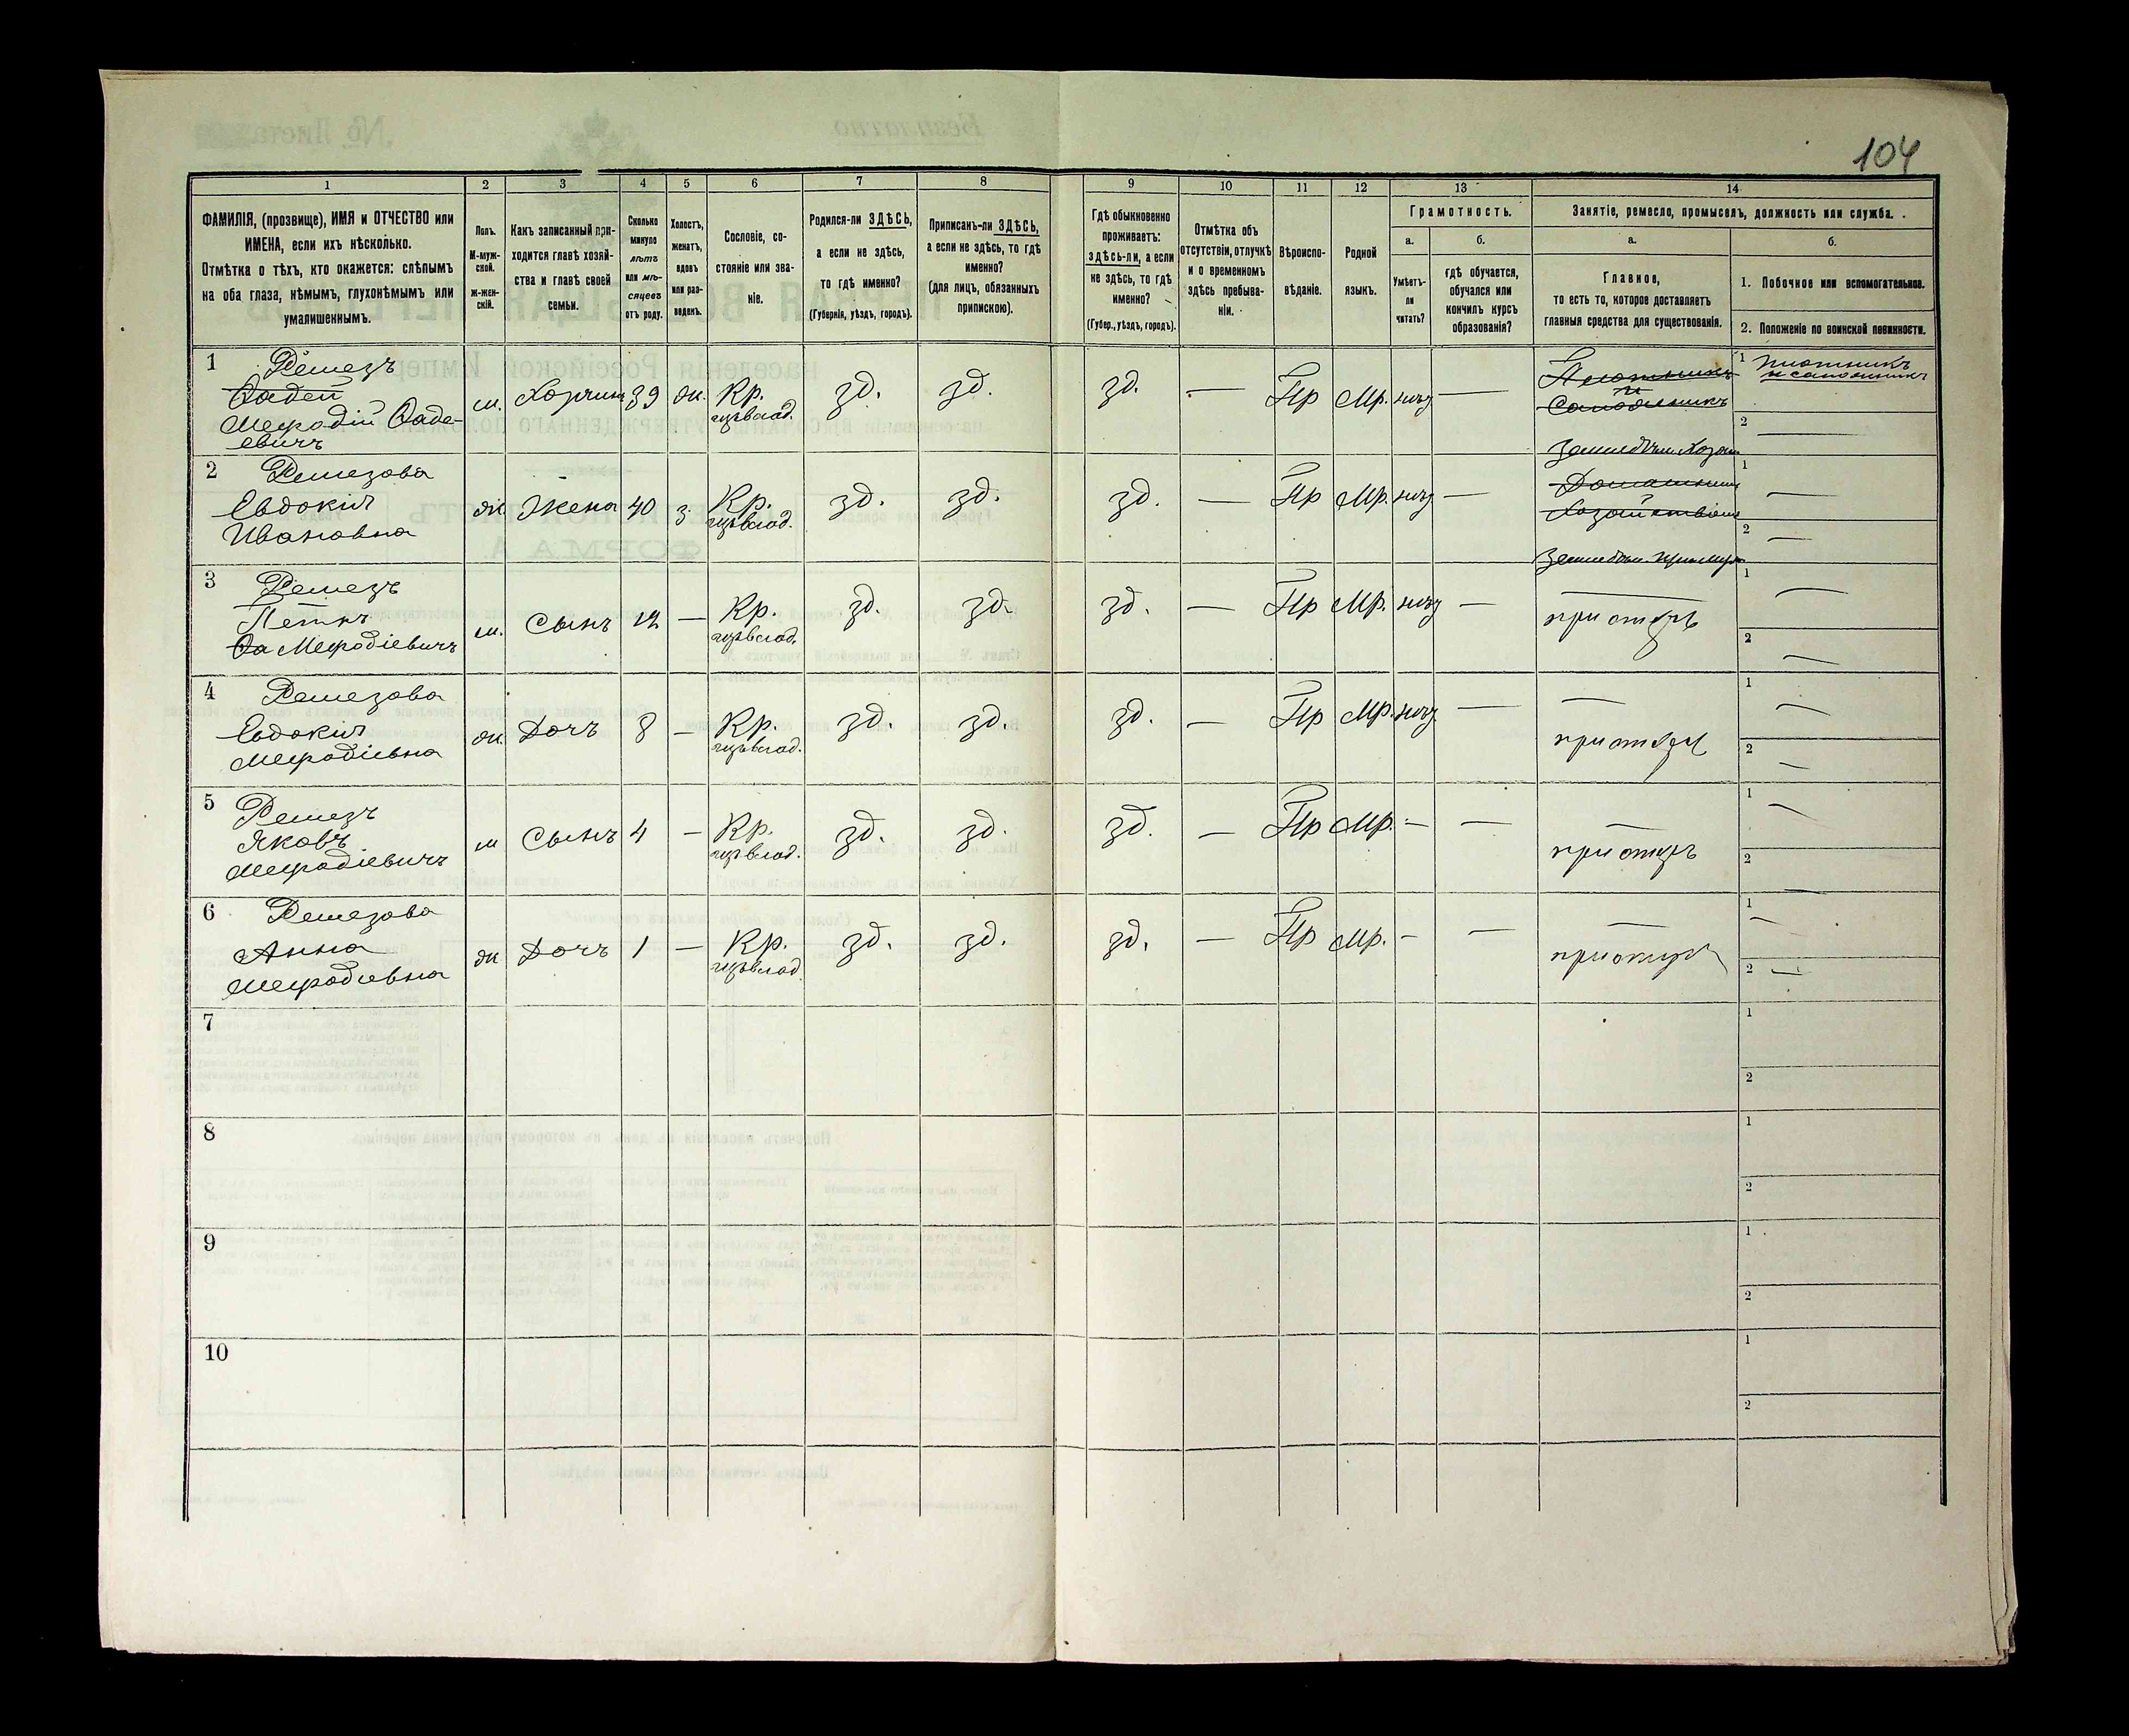 104
1
2
3
4
5
6
7
8
9
10
11
12
13
14
ФАМИЛІЯ, (прозвище), ИМЯ и ОТЧЕСТВО или
ИМЕНА, если ихъ нѣсколько.
Отмѣтка о тѣхъ, кто окажется: слѣпымъ
на оба глаза, нѣмымъ, глухонѣмымъ или
умалишеннымъ.
Полъ.
М-муж-
ской.
Ж-жен-
скій.
Какъ записанный при-
ходится главѣ хозяй-
ства и главѣ своей
семьи.
Сколько
минуло
лѣтъ
или мѣ-
сяцевъ
отъ роду.
Холостъ,
женатъ,
вдовъ
или раз-
веденъ.
Сословіе, со-
стояніе или зва-
ніе.
Родился-ли ЗДѢСЬ,
а если не здѣсь,
то гдѣ именно?
(Губернія, уѣздъ, городъ).
Приписанъ-ли ЗДѢСЬ,
а если не здѣсь, то гдѣ
именно?
(для лицъ, обязанныхъ
припискою).
Гдѣ обыкновенно
проживаетъ:
ЗДѢСЬ-ЛИ, а если
не здѣсь, то гдѣ
именно?
(Губер., уѣздъ, городъ).
Отмѣтка объ
отсутствіи, отлучкѣ
и о временномъ
здѣсь пребыва-
ніи.
Вѣроиспо-
вѣданіе.
Родной
языкъ.
Грамотность.
а.
б.
Умѣетъ-
ли
читать?
гдѣ обучается,
обучался или
кончилъ курсъ
образованія?
Занятіе, ремесло, промыселъ, должность или служба.
а.
б.
Главное,
то есть то, которое доставляетъ
главныя средства для существованія.
1. Побочное или вспомогательное.
2. Положеніе по воинской повинности.
1 Ремезъ
Фадей
Мефодій Фаде-
евичъ
м. 39 ж. Кр. зд. зд. зд. — Пр Мр. —
Плотникъ
и
Сапожникъ
1 плотникъ
и сапожникъ
2 —
2 Ремезова
Евдокія
Ивановна
ж Жена 40 з. Кр. зд. зд. зд. — Пр Мр. —
Домашнимъ
1 —
2 —
3 Ремезъ
Петръ
Фа Мефодіевичъ
м. Сынъ 12 — Кр. зд. зд. зд. — Пр Мр. —
при отцѣ
1 —
2 —
4 Ремезова
Евдокія
Мефодіевна
ж. Дочь 8 — Кр. зд. зд. зд. — Пр Мр. — —
при отцѣ
1 —
2 —
5 Ремезъ
Яковъ
Мефодіевичъ
м Сынъ 4 — Кр. зд. зд. зд. — Пр Мр. — — —
при отцѣ
1 —
2 —
6 Ремезова
Анна
Мефодіевна
ж Дочь 1 — Кр. зд. зд. зд. — Пр Мр. — — —
при отцѣ
1 —
2 —
7
1
2
8
1
2
9
1
2
10
1
2